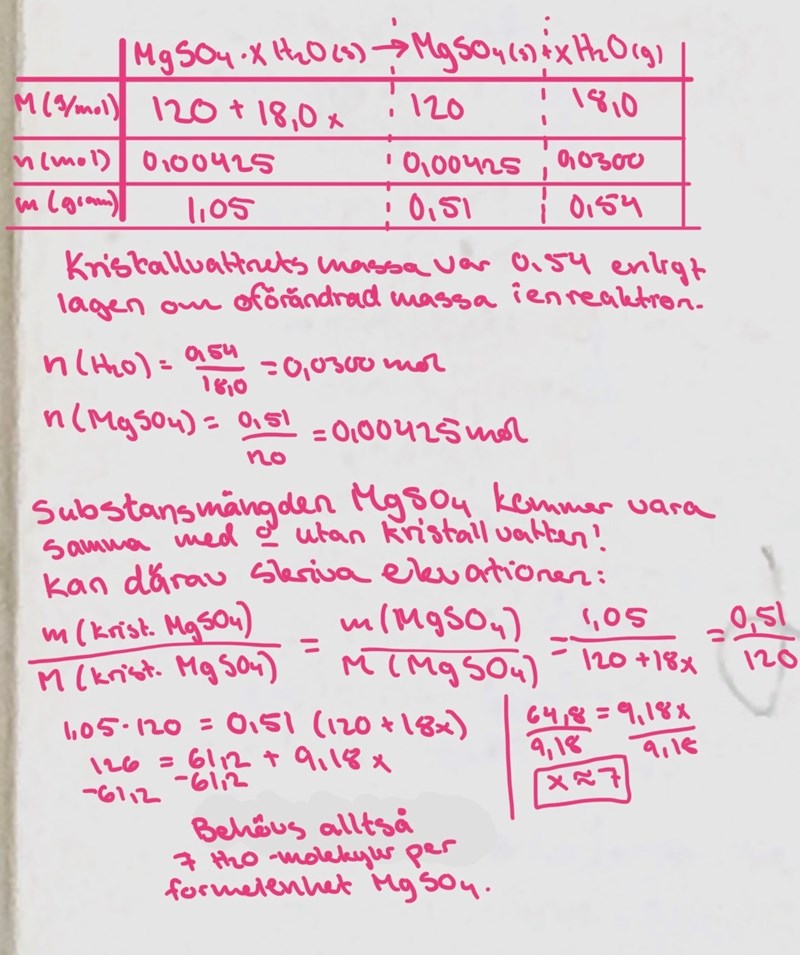 MgSO₄·XH₂O(s) → MgSO₄(s) + xH₂O(g)
M (g/mol) 120 + 18,0x 120 18,0
n(mol) 0,00425 0,00425 0,0300
m (gram) 1,05 0,51 0,54
Kristallvattnets massa var 0.54 enligt
lagen om oförändrad massa i en reaktion.
n(H₂O) = 0,54/18,0 = 0,0300 mol
n(MgSO₄) = 0,51/120 = 0,00425 mol
Substansmängden MgSO₄ kommer vara
samma med o utan kristallvatten!
Kan därav skriva ekvationen:
m(krist. MgSO₄)/M(krist. MgSO₄) = m(MgSO₄)/M(MgSO₄) = 1,05/120+18x = 0,51/120
1,05·120 = 0,51 (120 + 18x)
126 = 61,2 + 9,18x
-61,2 -61,2
64,8/9,18 = 9,18x/9,18
x≈7
Behövs alltså
7 H₂O-molekyler per
formelenhet MgSO₄.